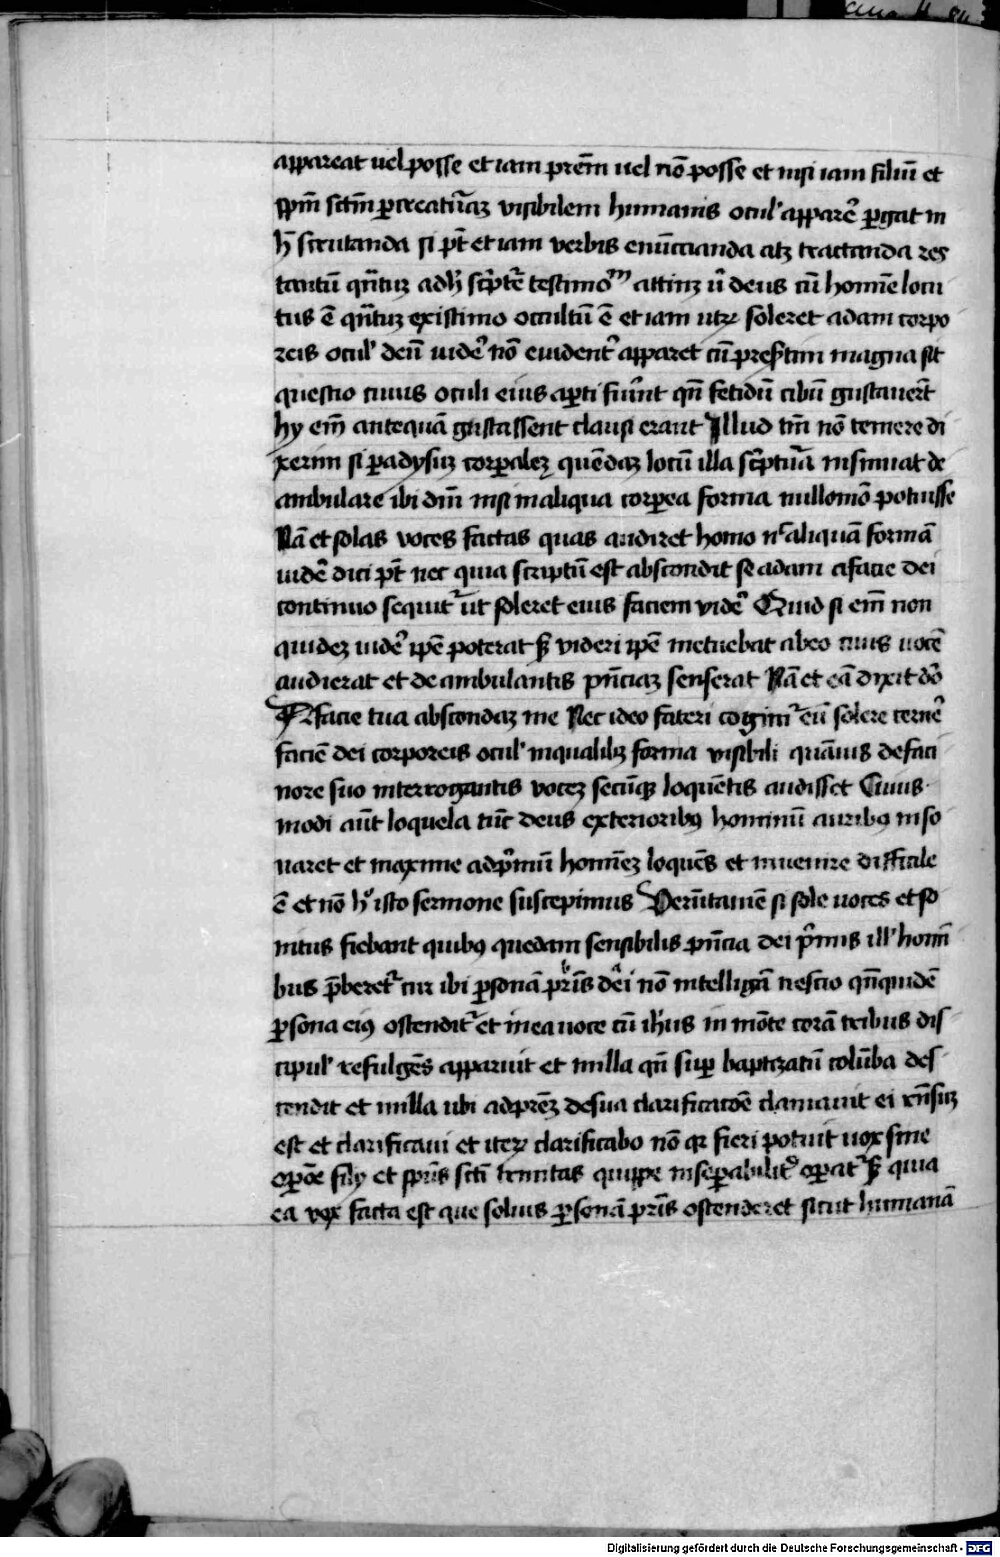 appareat uel posse et iam prēm uel nō posse et nisi iam filiū et
spm̄ sctm̄ p creaturaz visibilem humanis ocul' apparē pergat in
scrutanda si pt̄ et iam verbis enūccianda atz tractanda res
tantū qn̄tuz testimo attinz deus cū homīe locu
tus ē qn̄tuz existimo occultū ē et iam soleret adam corpo
reis ocul' deū uidē nō evident apparet cū prestim magna sit
questio cuius oculi eius apti fiūnt qn̄ fetidū cibū gustauert̄
hy em̄ antequā gustassent clausi erant Illud tm̄ nō temere di
xerim si padysuz corpalez quēdaz locū illa sc̄ptura insinuat de
ambulare ibi dm̄ nisi in aliqua corpea forma nullomō potuisse
Nā et solas voces factas quas audiret homo aliquā formā
uidē dici pt̄ nec quia scriptū est abscondit se adam a facie dei
continuo sequit ut soleret eius faciem vidē Quid si em̄ non
quidez uidē ipe poterat videri ipe metuebat ab eo cuius uocē
audierat et de ambulantis pn̄ciaz senserat Nā et eā dixit
A facie tua abscondaz me Nec ideo fateri cogim eū solere cernē
faciē dei corporeis ocul' in qualibz forma visibili quāuis de faci
nore suo interrogantis vocez loquētis audisset Cuius
modi aūt loquela tūc deus exterioribus hominū auribus inso
naret et maxime ad pmū homēz loquēs et inuenire difficile
ē et nō isto sermone suscepimus Verūtamē si sole uoces et so
nitus fiebant quibus quedam sensibilis pn̄cia dei pmis ill' homī
bus pberet cur ibi psonā pris dei nō intelligā nescio qn̄quidē
psona eius ostendit et in ea uoce cū ihus in mōte corā tribus dis
cipul' refulgēs apparuit et in illa qn̄ sup baptizatū colūba des
cendit et in illa ubi ad prēz de sua clarificacōe clamauit ei rn̄suz
est et clarificaui et iterz clarificabo nō qr fieri potuit uox sine
opōe filij et spūs scti trinitas quippe insepabilit opat quia
ea vox facta est que solius psonā pris ostenderet sicut humanā
Digitalisierung gefördert durch die Deutsche Forschungsgemeinschaft - DFG